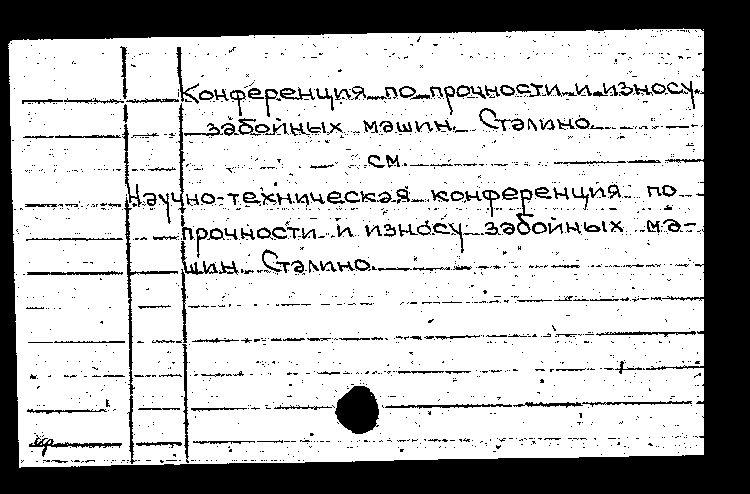 Конференция по прочности и износу
забойных машин. Сталино.
см.
Научно-техническая конференция по
прочности и износу забойных ма-
шин. Сталино.